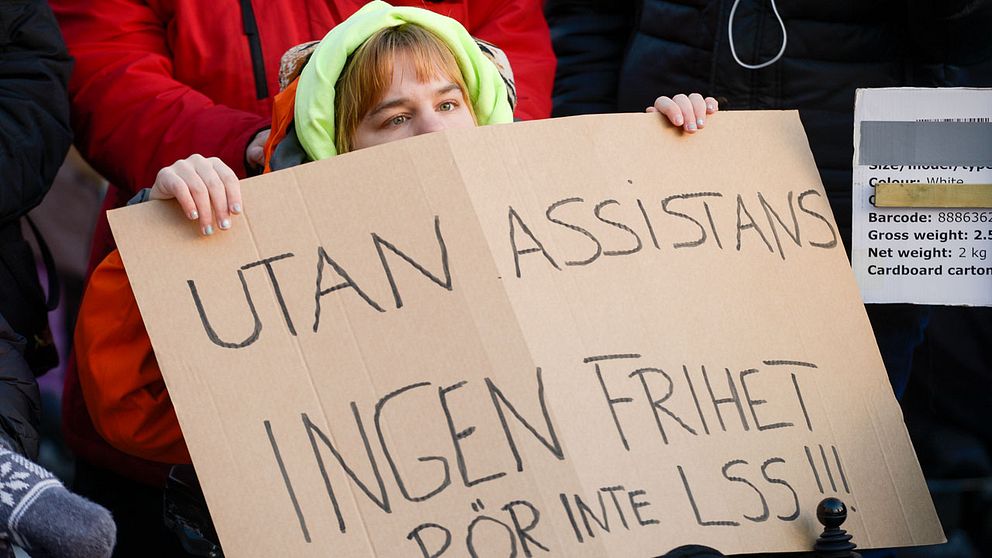 UTAN ASSISTANS
INGEN FRIHET
RÖR INTE LSS!!!
Size/model/type
Colour: White
Barcode: 8886362
Gross weight: 2.5
Net weight: 2 kg
Cardboard carton